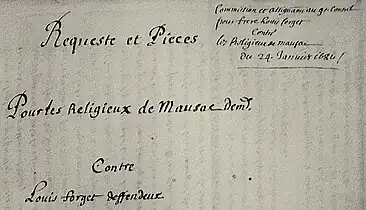 Commission et assignation au gr. Conseil
pour frere Louis forget
Contre
les Religieux de mausac
du 24. Januier 1686 /
Requeste et Pieces
Pour les Religieux de Mausac dem.rs
Contre
Louis forget deffendeur